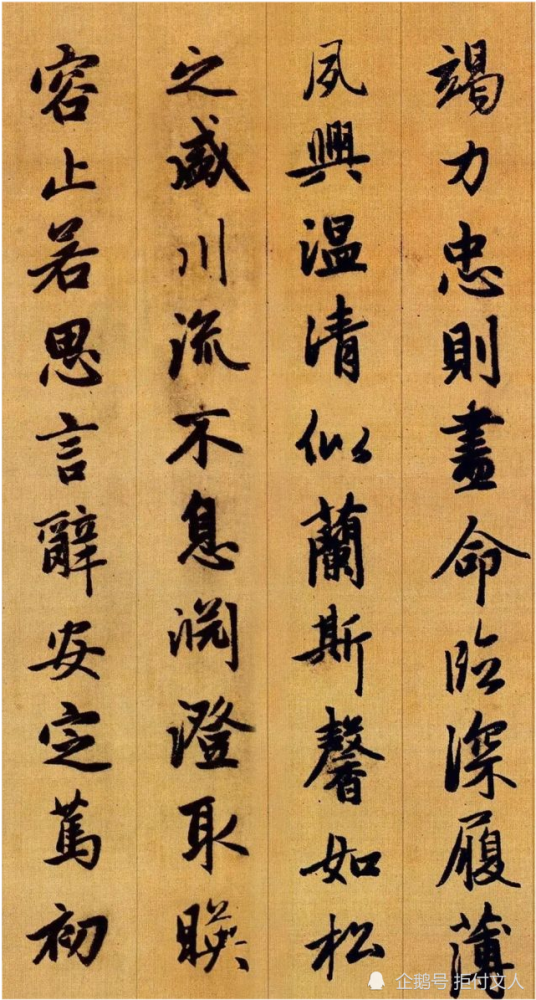 竭力忠則盡命臨深履薄
夙興温清似蘭斯馨如松
之盛川流不息淵澄取暎
容止若思言辭安定篤初
企鹅号 拒付文人